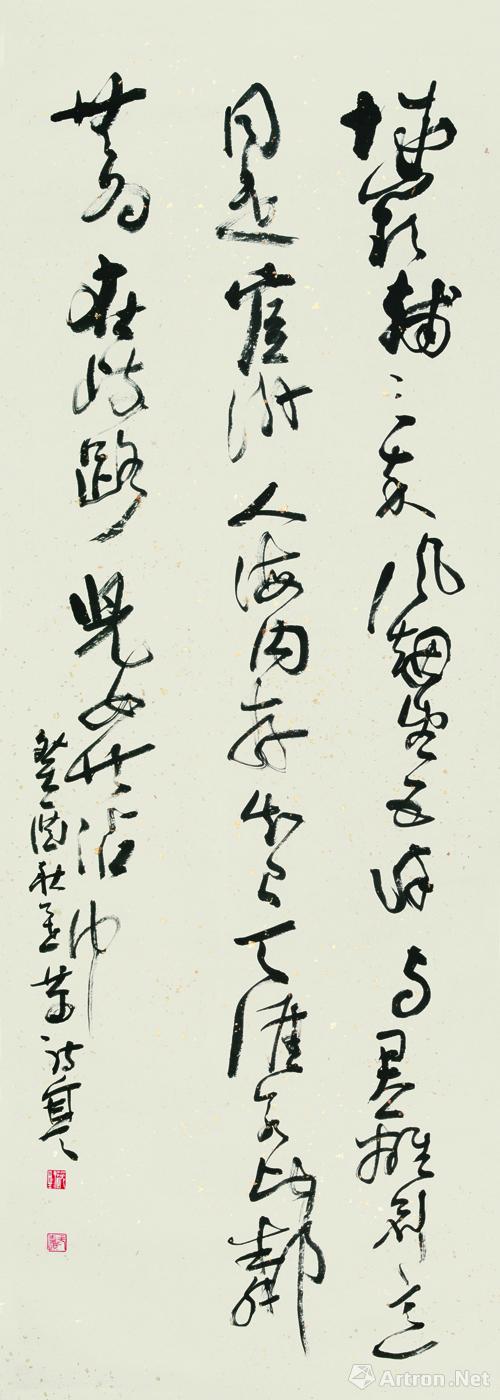 城闕輔三秦風烟望五津与君離別意
同是宦游人海内存知己天涯若比鄰
無為在歧路兒女共沾巾
癸酉秋
Artron.Net